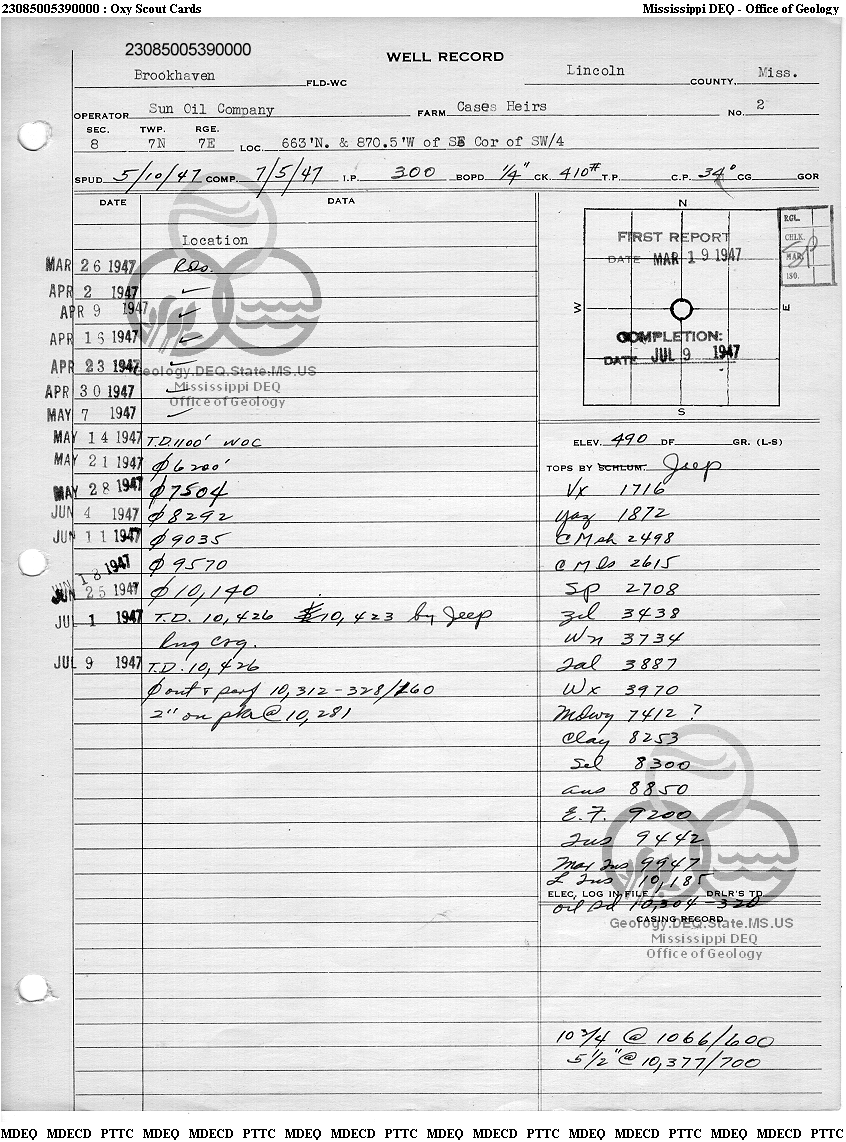 23085005390000 : Oxy Scout Cards Mississippi DEQ - Office of Geology
23085005390000
WELL RECORD
Brookhaven FLD-WC Lincoln COUNTY, Miss.
OPERATOR Sun Oil Company FARM Cases Heirs No. 2
SEC. TWP. RGE.
8 7N 7E LOC. 663'N. & 870.5'W of SE Cor of SW/4
SPUD 5/10/47 COMP. 7/5/47 I.P. 300 BOPD 1/4" CK. 410# T.P. C.P. 34° CG GOR
DATE DATA
Location
MAR 26 1947
APR 2 1947 ✓
APR 9 1947 ✓
APR 16 1947 ✓
APR 23 1947 ✓
APR 30 1947 ✓
MAY 7 1947 ✓
MAY 14 1947 T.D. 1100' WOC
MAY 21 1947 ϕ 6200'
MAY 28 1947 ϕ 7504
JUN 4 1947 ϕ 8292
JUN 11 1947 ϕ 9035
JUN 18 1947 ϕ 9570
JUN 25 1947 ϕ 10,140
JUL 1 1947 T.D. 10,426 10,423 by Jeep
Rng Csg.
JUL 9 1947 T.D. 10,426
ϕ out & perf 10,312-328/160
2" on pkr @ 10,281
Geology.DEQ.State.MS.US
Mississippi DEQ
Office of Geology
N
W E
S
FIRST REPORT
DATE MAR 19 1947
COMPLETION:
DATE JUL 9 1947
RGL.
CHLK.
MAR.
ISO.
ELEV. 490 DF. GR. (L-S)
TOPS BY SCHLUM. Jeep
Vx 1716
Yaz 1872
C M sh 2498
C M ls 2615
Sp 2708
Zil 3438
Wn 3734
Tal 3887
Wx 3970
Mdwy 7412 ?
Clay 8253
Sel 8300
Aus 8850
E.F. 9200
Tus 9442
Mar Tus 9947
L Tus 10,185
ELEC, LOG IN FILE DRLR'S TD
oil sd 10,304-320
CASING RECORD
Geology.DEQ.State.MS.US
Mississippi DEQ
Office of Geology
10 3/4 @ 1066/600
5 1/2" @ 10,377/700
MDEQ MDECD PTTC MDEQ MDECD PTTC MDEQ MDECD PTTC MDEQ MDECD PTTC MDEQ MDECD PTTC MDEQ MDECD PTTC